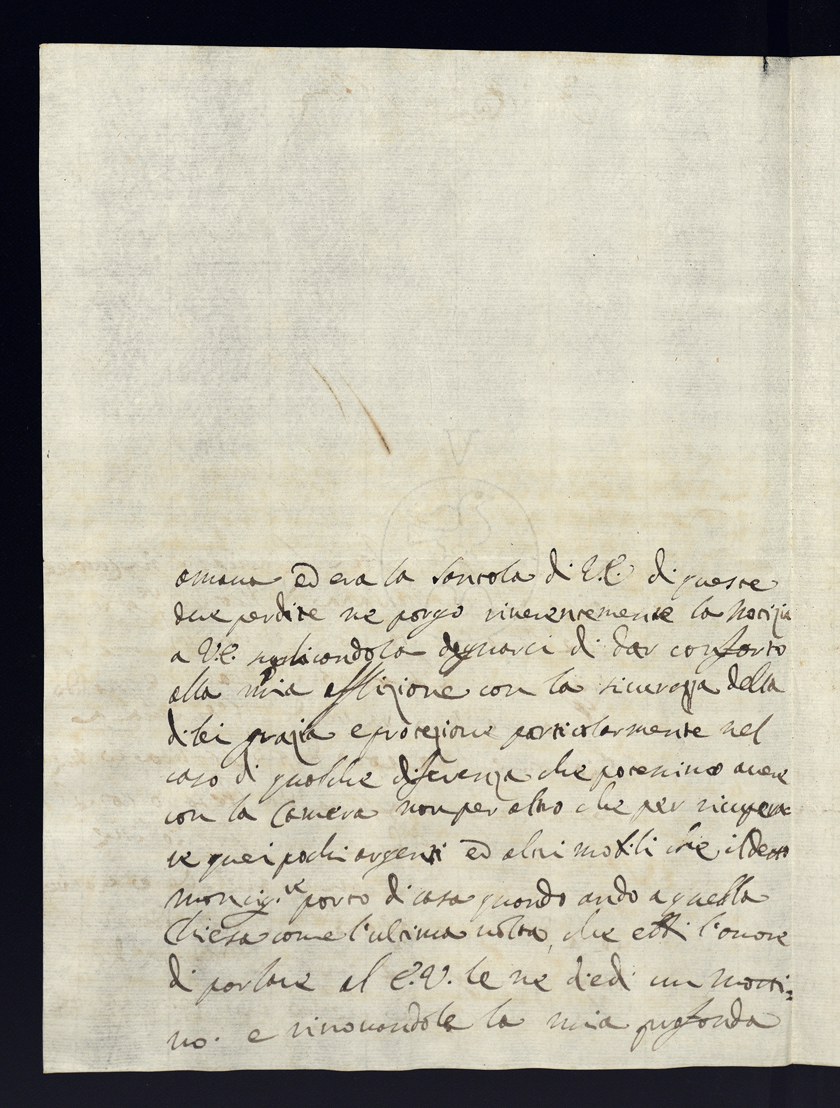 omana ed era la Santola di V.E. di queste
due perdite ne porgo riverentemente la Notizia
a V.E. suplicandola degnarci di dar conforto
alla mia afflizione con la sicurezza della
di lei grazia e protezione particolarmente nel
caso di qualche diferenza che potessimo avere
con la Camera non per altro che per ricupera
re quei pochi argenti ed altri mobili che il detto
moncig.re porto di casa quando ando a quella
Chiesa come l'ultima volta, che ebbi l'onore
di parlare al E.V. le ne diedi un motti=
no. e rinovandole la mia profonda